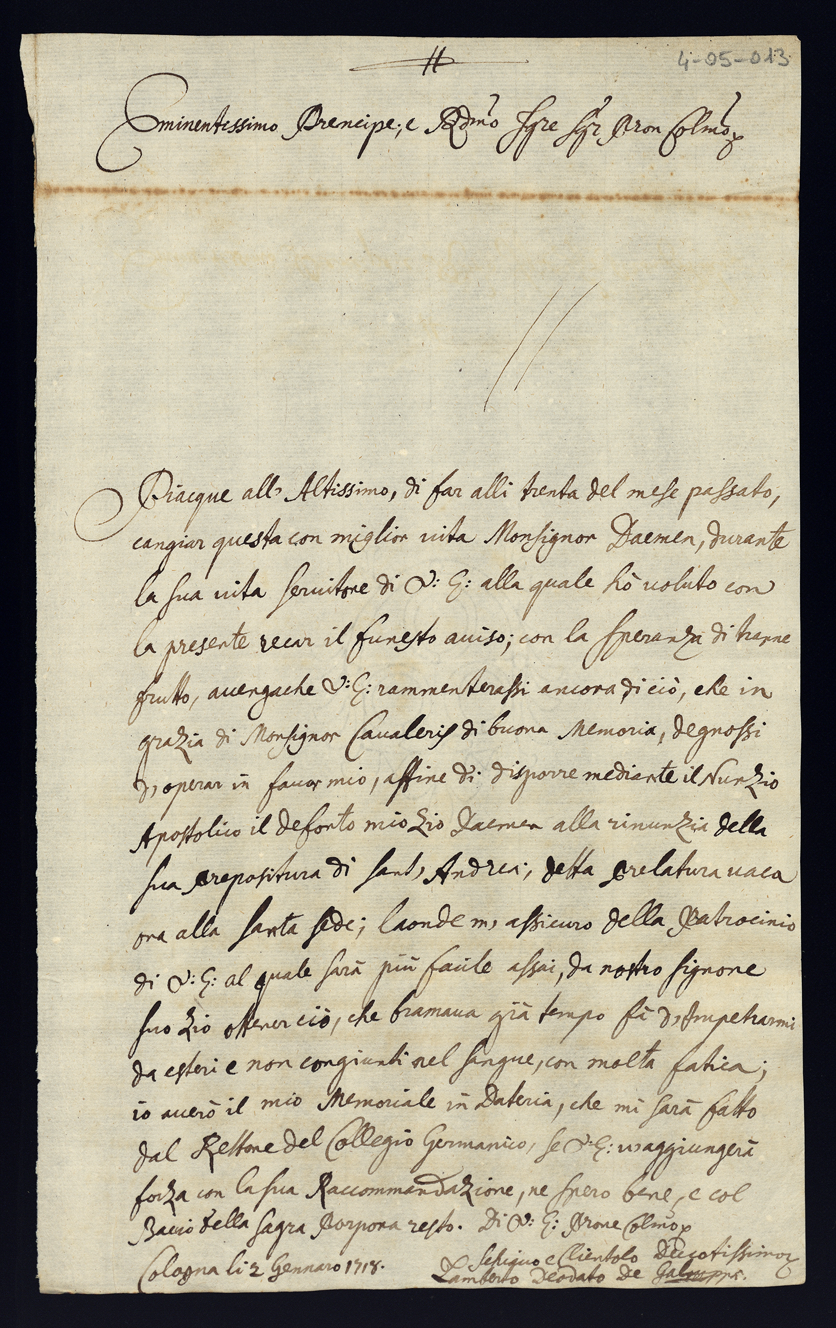 4-05-013
Eminentissimo Prencipe, e Rdmo Sgre Sgr Pron Colmo
Piacque all' Altissimo, di far alli trenta del mese passato,
cangiar questa con miglior vita Monsignor Daemen, durante
la sua vita servitore di V: E: alla quale hò voluto con
la presente recar il funesto aviso; con la speranza di trarne
frutto, avengache V: E: rammenterassi ancora di ciò, che in
grazia di Monsignor Cavalerij di buona Memoria, degnossi
d'operar in favor mio, affine di disporre mediante il Nunzio
Apostolico il defonto mio Zio Daemen alla rinunzia della
sua prepositura di sant' Andrea; detta prelatura vaca
ora alla santa sede; laonde m' assicuro della Patrocinio
di V: E: al quale sarà più facile assai, da nostro signore
suo Zio ottener ciò, che bramava già tempo fà d'impetrarmi
da esteri e non congiunti nel sangue, con molta fatica;
io averò il mio Memoriale in Dateria, che mi sarà fatto
dal Rettore del Collegio Germanico, se V: E: v'aggiungerà
forza con la sua Raccommandazione, ne spero bene, e col
Bacio della sagra Porpora resto. Di V: E: Prone Colmo
Cologna li 2 Gennaro 1718.
e Clientolo Devotissimo
Lamberto Deodato De